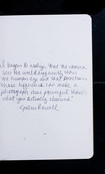 I began to realize that the camera
sees the world differently than
the human eye and that sometimes
those differences can make a
photograph more powerful than
what you actually observed."
Galen Rowell